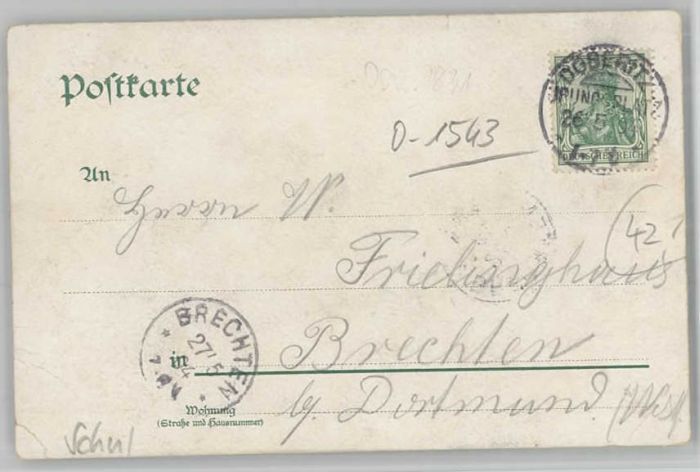 Postkarte
DÖBERITZ
26 5
DEUTSCHES REICH
O-1543
An
Herrn W.
42
Friedinghaus
BRECHTEN
27 5
in Brechten
Wohnung
(Straße und Hausnummer)
b/ Dortmund (Westf